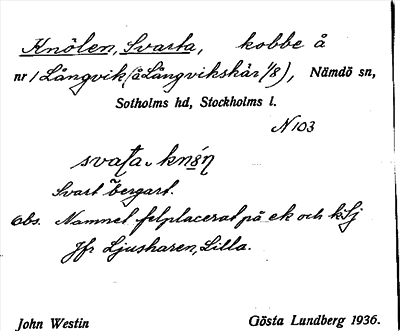 Knölen, Svarta, kobbe å
nr 1 Långvik (å Långvikskär 1/8), Nämdö sn,
Sotholms hd, Stockholms l.
N 103
Svart bergart.
Obs. Namnet felplacerat på ek och kSj
Jfr Ljusharen, Lilla.
John Westin Gösta Lundberg 1936.